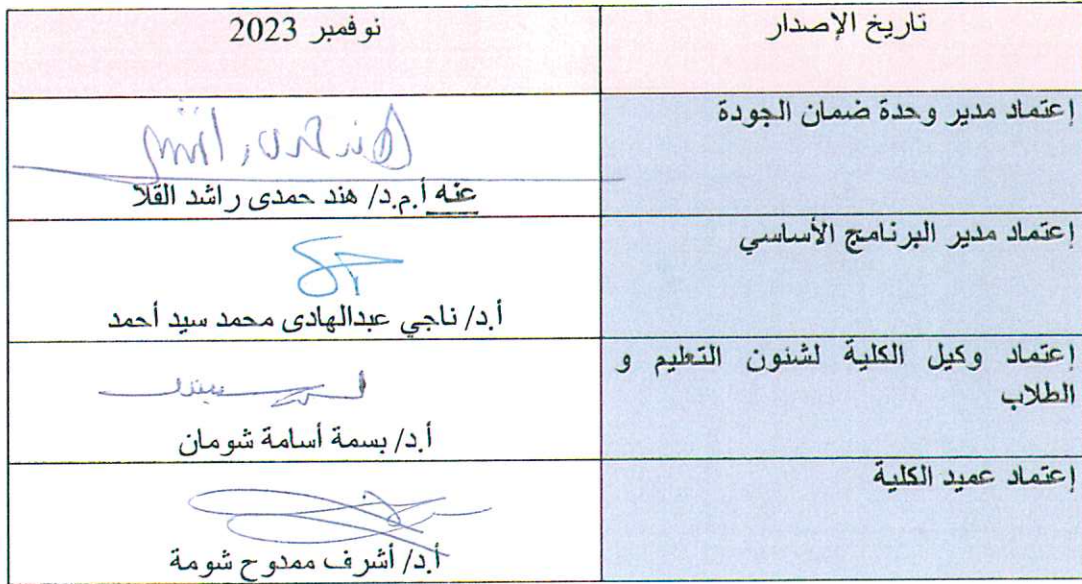 تاريخ الإصدار
نوفمبر 2023
إعتماد مدير وحدة ضمان الجودة
عنه أ.م.د/ هند حمدى راشد القلا
إعتماد مدير البرنامج الأساسي
أ.د/ ناجي عبدالهادى محمد سيد أحمد
إعتماد وكيل الكلية لشئون التعليم و
الطلاب
أ.د/ بسمة أسامة شومان
إعتماد عميد الكلية
أ.د/ أشرف ممدوح شومة